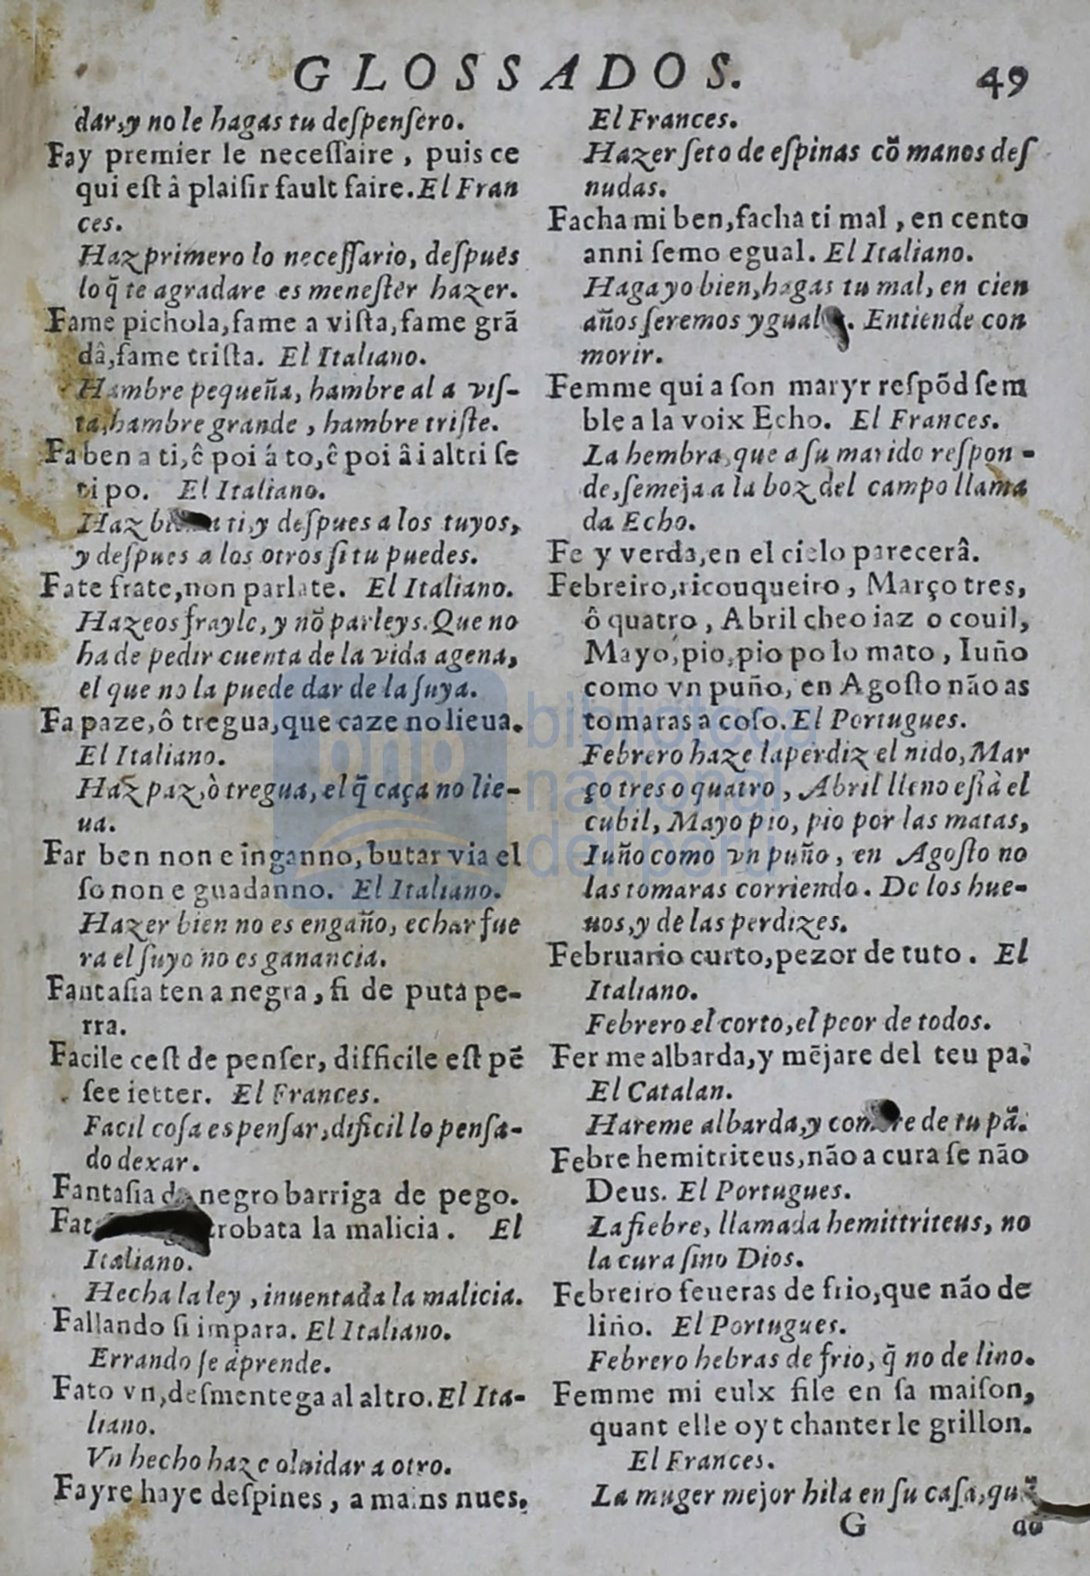 GLOSSADOS. 49
dar,y no le hagas tu deſpenſero.
Fay premier le neceſſaire, puis ce
qui eſt â plaiſir fault faire. El Fran
ces.
Haz primero lo neceſſario, deſpues
lo q̃ te agradare es meneſter hazer.
Fame pichola, fame a viſta, fame grã
dâ, fame triſta. El Italiano.
Hambre pequeña, hambre al a viſ-
ta, hambre grande, hambre triſte.
Fa ben a ti, ê poi á to, ê poi â i altri ſe
ti po. El Italiano.
Haz ti, y deſpues a los tuyos,
y deſpues a los otros ſi tu puedes.
Fate frate, non parlate. El Italiano.
Hazeos frayle, y nõ parleys. Que no
ha de pedir cuenta de la vida agena,
el que no la puede dar de la ſuya.
Fa paze, ô tregua, que caze no lieua.
El Italiano.
Haz paz, ò tregua, el q̃ caça no lie-
ua.
Far ben non e inganno, butar via el
ſo non e guadanno. El Italiano.
Hazer bien no es engaño, echar fue
ra el ſuyo no es ganancia.
Fantaſia ten a negra, ſi de puta pe-
rra.
Facile ceſt de penſer, difficile eſt pẽ
ſee ietter. El Frances.
Facil coſa es penſar, dificil lo penſa-
do dexar.
Fantaſia negro barriga de pego.
trobata la malicia. El
Italiano.
Hecha la ley, inuentada la malicia.
Fallando ſi impara. El Italiano.
Errando ſe aprende.
Fato vn, deſmentega al altro. El Ita-
liano.
Vn hecho haze oluidar a otro.
Fayre haye deſpines, a mains nues.
El Frances.
Hazer ſeto de eſpinas cõ manos deſ
nudas.
Facha mi ben, facha ti mal, en cento
anni ſemo egual. El Italiano.
Haga yo bien, hagas tu mal, en cien
años ſeremos yguales. Entiende con
morir.
Femme qui a ſon maryr reſpõd ſem
ble a la voix Echo. El Frances.
La hembra, que a ſu marido reſpon-
de, ſemeja a la boz del campo llama
da Echo.
Fe y verda, en el cielo parecerâ.
Febreiro, ricouqueiro, Março tres,
ô quatro, Abril cheo iaz o couil,
Mayo, pio, pio po lo mato, Iuño
como vn puño, en Agoſto não as
tomaras a coſo. El Portugues.
Febrero haze la perdiz el nido, Mar
ço tres o quatro, Abril lleno eſtà el
cubil, Mayo pio, pio por las matas,
Iuño como vn puño, en Agoſto no
las tomaras corriendo. De los hue-
uos, y de las perdizes.
Februario curto, pezor de tuto. El
Italiano.
Febrero el corto, el peor de todos.
Fer me albarda, y mẽjare del teu pa.
El Catalan.
Hareme albarda, y de tu pã.
Febre hemitriteus, não a cura ſe não
Deus. El Portugues.
La fiebre, llamada hemittriteus, no
la cura ſino Dios.
Febreiro feueras de frio, que não de
liño. El Portugues.
Febrero hebras de frio, q̃ no de lino.
Femme mi eulx file en ſa maiſon,
quant elle oyt chanter le grillon.
El Frances.
La muger mejor hila en ſu caſa,
G do
biblioteca
nacional
del perú
bnp